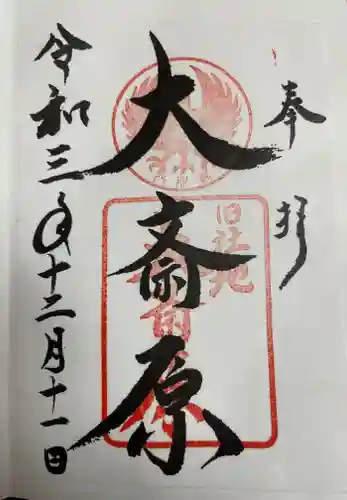 奉拝
旧社地
大斎原
令和三年十二月十一日